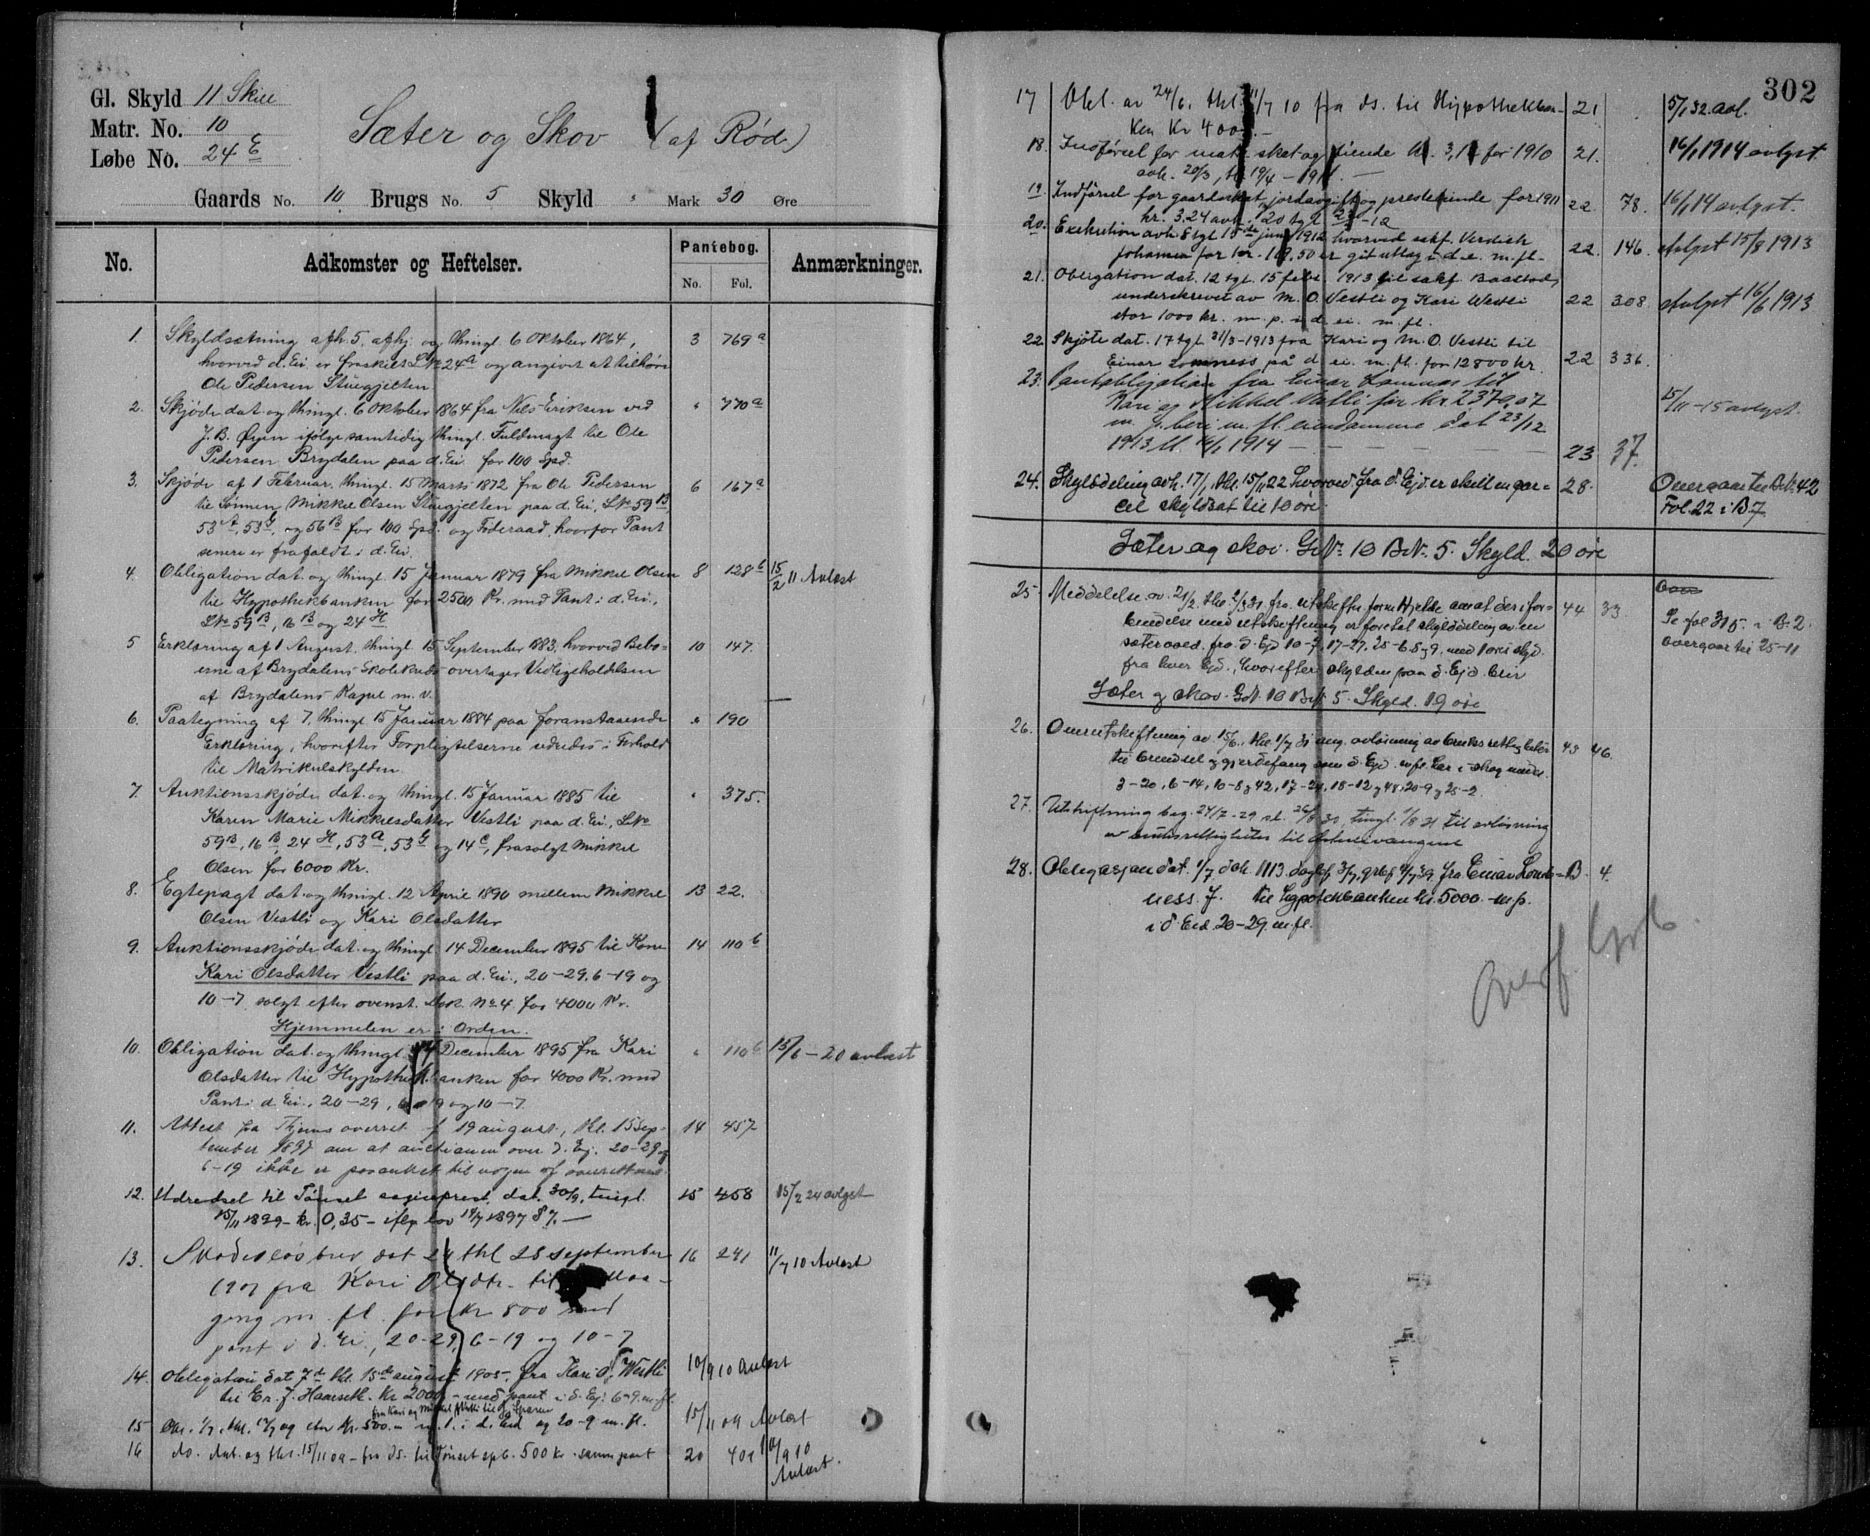 302
Gl. Skyld 11 Skill
Matr. No. 10
Løbe No. 24 E
Sæter og Skov (af Rød)
Gaards No. 10 Brugs No. 5 Skyld " Mark 30 Øre
No. Adkomster og Heftelser. Pantebog. Anmærkninger.
No. Fol.
1. Skyldsætning afh. 5, afhj. og thingl. 6 Oktober 1864, 3 769a
hvorved d. Ei. er fraskilt L№ 24a og angivet at tilhøre
Ole Pedersen Stuegjelten
2. Skjøde dat. og thingl. 6 Oktober 1864 fra Nils Eriksen ved " 770a
J. B. Øyen ifølge samtidig thingl. Fuldmagt til Ole
Pedersen Brydalen paa d. Ei. for 100 Spd.
3. Skjøde af 1 Februar, thingl. 15 Marts 1872 fra Ole Pedersen 6 167a
til Sønnen Mikkel Olsen Stuegjelten paa d. Ei., L№ 59B,
53A, 53G, og 56B for 100 Spd. og Föderaad, hvorfor Pant
senere er frafaldt i d. Ei.
4. Obligation dat. og thingl. 15 Januar 1879 fra Mikkel Olsen 8 128b 15/2 11 Avlæst
til Hypothekbanken for 2500 Kr. med Pant i d. Ei.,
L№ 59B, 16B og 24H
5 Erklæring af 1 August, thingl. 15 September 1883, hvorved Bebo- 10 147.
erne af Brydalens Skolekreds overtager Vedligeholdelsen
af Brydalens Kapel m. v.
6. Paategning af 7, thingl. 15 Januar 1884 paa foranstaaende " 190
Erklæring, hvorefter Forpligtelserne udredes i Forhold
til Matrikulskylden.
7. Auktionsskjøde dat. og thingl. 15 Januar 1885 til " 375.
Karen Marie Mikkelsdatter Vestli paa d. Ei., L№
59B, 16B, 24H, 53A, 53G og 14C, frasolgt Mikkel
Olsen for 6000 Kr.
8. Egtepagt dat. og thingl. 12 April 1890 mellem Mikkel 13 22.
Olsen Vestli og Kari Olsdatter
9. Auktionsskjøde dat. og thingl. 14 December 1895 til Kone 14 110b
Kari Olsdatter Vestli paa d. Ei., 20-29, 6-19 og
10-7 solgt efter ovenst. Dok. No 4 for 4000 Kr.
Hjemmelen er i Orden.
10. Obligation dat. og thingl. 14 December 1895 fra Kari " 110b 15/6-20 avlæst
Olsdatter til Hypothekbanken for 4000 Kr. med
Pant i d. Ei., 20-29, 6-19 og 10-7
11. Attest fra Thjems overret af 19 august, thl. 15 Sep- 14 457
tember 1897 om at auctionen over d. Ej. 20-29 og
6-19 ikke er paaanket til nogen af overretterne
12. Udredsel til Tønset sogneprest, dat. 30/9, tingl. 15 458 15/2 24 avlyst
15/11 1899 - kr. 0,35 - iflg. lov 14/7 1897 § 7. —
13. Skadesløsbrev dat 24 thl 28 September 16 241 11/7 10 Avlæst
1901 fra Kari Olsdtr. til
m. fl. for kr 800 med
pant i d. Ei., 20-29, 6-19 og 10-7
14. Obligation dat 7de thl. 15de august 1905, fra Kari O. Westli 10/9 10 Avlæst
til Er. J. Haarseth. Kr 2000 - med pant i d. Ej. 6-19 m. fl.
fra Kari og Mikkel Vestli til
15 Obl. 1/7, thl. 17/7 09 stor Kr. 500.- m. p. i d. Eid og 20-9 m. fl. 15/11 09 Avlæst
16 do. dat. og thl. 15/11 09 - fra ds. til Tönset spb. 500 kr. samme pant 20 401 10/9 10
Avlæst.
17 Obl. av 24/6, thl. 11/7 10 fra ds. til Hypothekban- 21 5/1 32. avl.
ken Kr 4000.-
18. Indførsel for matr. skat og tiende for 1910 21. 16/1 1914 avlyst
avh. 20/3, tl. 19/4 - 1911. —
19 Indførsel for gaardskat, jordavgift og prestetiende for 1911 22. 78. 16/1 14 avlyst.
kr. 3.24 avh. 20 tgl. -12
20. Exekution avh. 8 tgl. 15de juni 1912 hvorved sakf. Verdich 22. 146. Avlyst 15/8 1913
Johansen for kr. er git utlæg i d. e. m. fl.
21. Obligation dat. 12 tgl. 15 febr. 1913 til sakf. Baastad, 22 308. Avlyst 16/6 1913
underskrevet av M. O. Vestli og Kari Westli
stor 1000 kr. m. p. i d. ei. m. fl.
22. Skjøte dat. 17 tgl. 31/3-1913 fra Kari og M. O. Vestli til 22 336.
Einar Lomness på d. ei. m. fl. for 12800 kr.
23. Panteobligation fra Einar Lomnes til 15/11-15 avlyst.
Kari og Mikkel Vestli for kr 2379,07
m. p. i m. fl. eiendomme dat 23/12
1913 tl. 16/1 1914 — 23 37.
24. Skylddeling avh. 17/1 thl. 15/11 22 hvorved fra d. Ejd. er skilt en par- 28. Overgaar til B.№ 42
cel skyldsat til 10 øre. Fol. 22 i B 7
Sæter og skov. G№ 10 B№ 5. Skyld. 20 øre
25. Meddelelse av 21/2 thl. 2/3 31 fra utskiftn. form. Hjelde om at der i for- 44 33
bindelse med utskiftning er foretat skylddeling av en Se fol 315. i B. 2.
sæterved. fra d. Ejd 10-7, 17-27, 25-6, 8, 9, med 1 øre skyld overgaar til 25-11
fra hver Ejd., hvorefter skylden paa d. Ejd. blir
Sæter og skov. G№ 10 B№ 5. Skyld. 19 øre
26. Om utskiftning av 15/6, thl 1/7 31 ang. avløsning av bruksrettigheter 43 46.
til brendsel og gjerdefang som d. Ejd. m fl. har i skog under
3-20, 6-14, 10-8 og 42, 17-24, 18-12 og 48, 20-9 og 25-2.
27. Utskiftning beg. 24/7-29 sl. 26/8 30, tingl. 1/8 31 til avløsning
av bruksrettigheter til
28. Obligasjon dat. 1/7 dok. 1113. dagbf 3/7, grbf 4/7 39 fra Einar Lom- B 4.
ness. J. til Hypotekbanken kr. 5000.- m. p.
i d. Eid. 20-29 m. fl.
Overf.